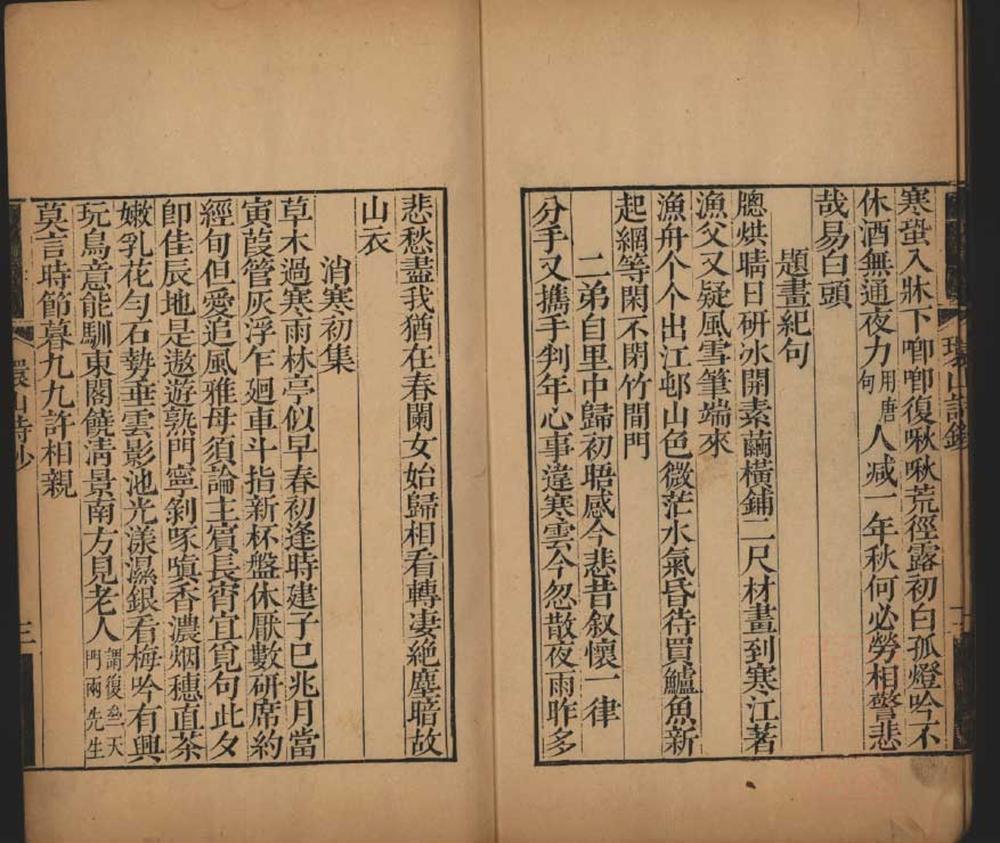 寒螀入牀下唧唧復啾啾荒徑露初白孤燈吟不
休酒無通夜力用唐句人减一年秋何必勞相警悲
哉易白頭
題畫絕句
牕烘晴日研冰開素繭橫鋪二尺材畫到寒江著
漁父又疑風雪筆端來
漁舟个个出江邨山色微茫水氣昏待買鱸魚新
起網等閑不閉竹間門
二弟自里中歸初晤感今悲昔叙懷一律
分手又攜手判年心事違寒雲今忽散夜雨昨多
悲愁盡我猶在春闌女始歸相看轉凄絕塵暗故
山衣
消寒初集
草木過寒雨林亭似早春初逢時建子已兆月當
寅葭管灰浮乍廻車斗指新杯盤休厭數研席約
經旬但愛追風雅毋須論主賓長宵宜覓句此夕
卽佳辰地是遨遊熟門寧剝啄嗔香濃烟穗直茶
嫩乳花勻石勢垂雲影池光漾濕銀看梅吟有興
玩鳥意能馴東閣饒淸景南方見老人謂復叁天門兩先生
莫言時節暮九九許相親
環山詩鈔
三